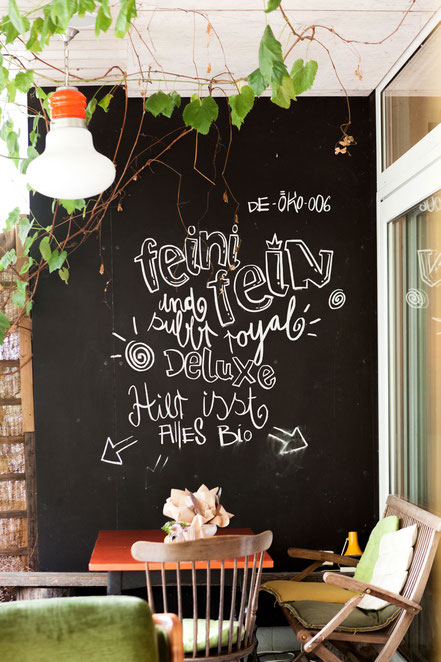 DE-ÖKO-006
feini
feiN
und
supper royal
DeLuxe
Hier isst
AlleS Bio